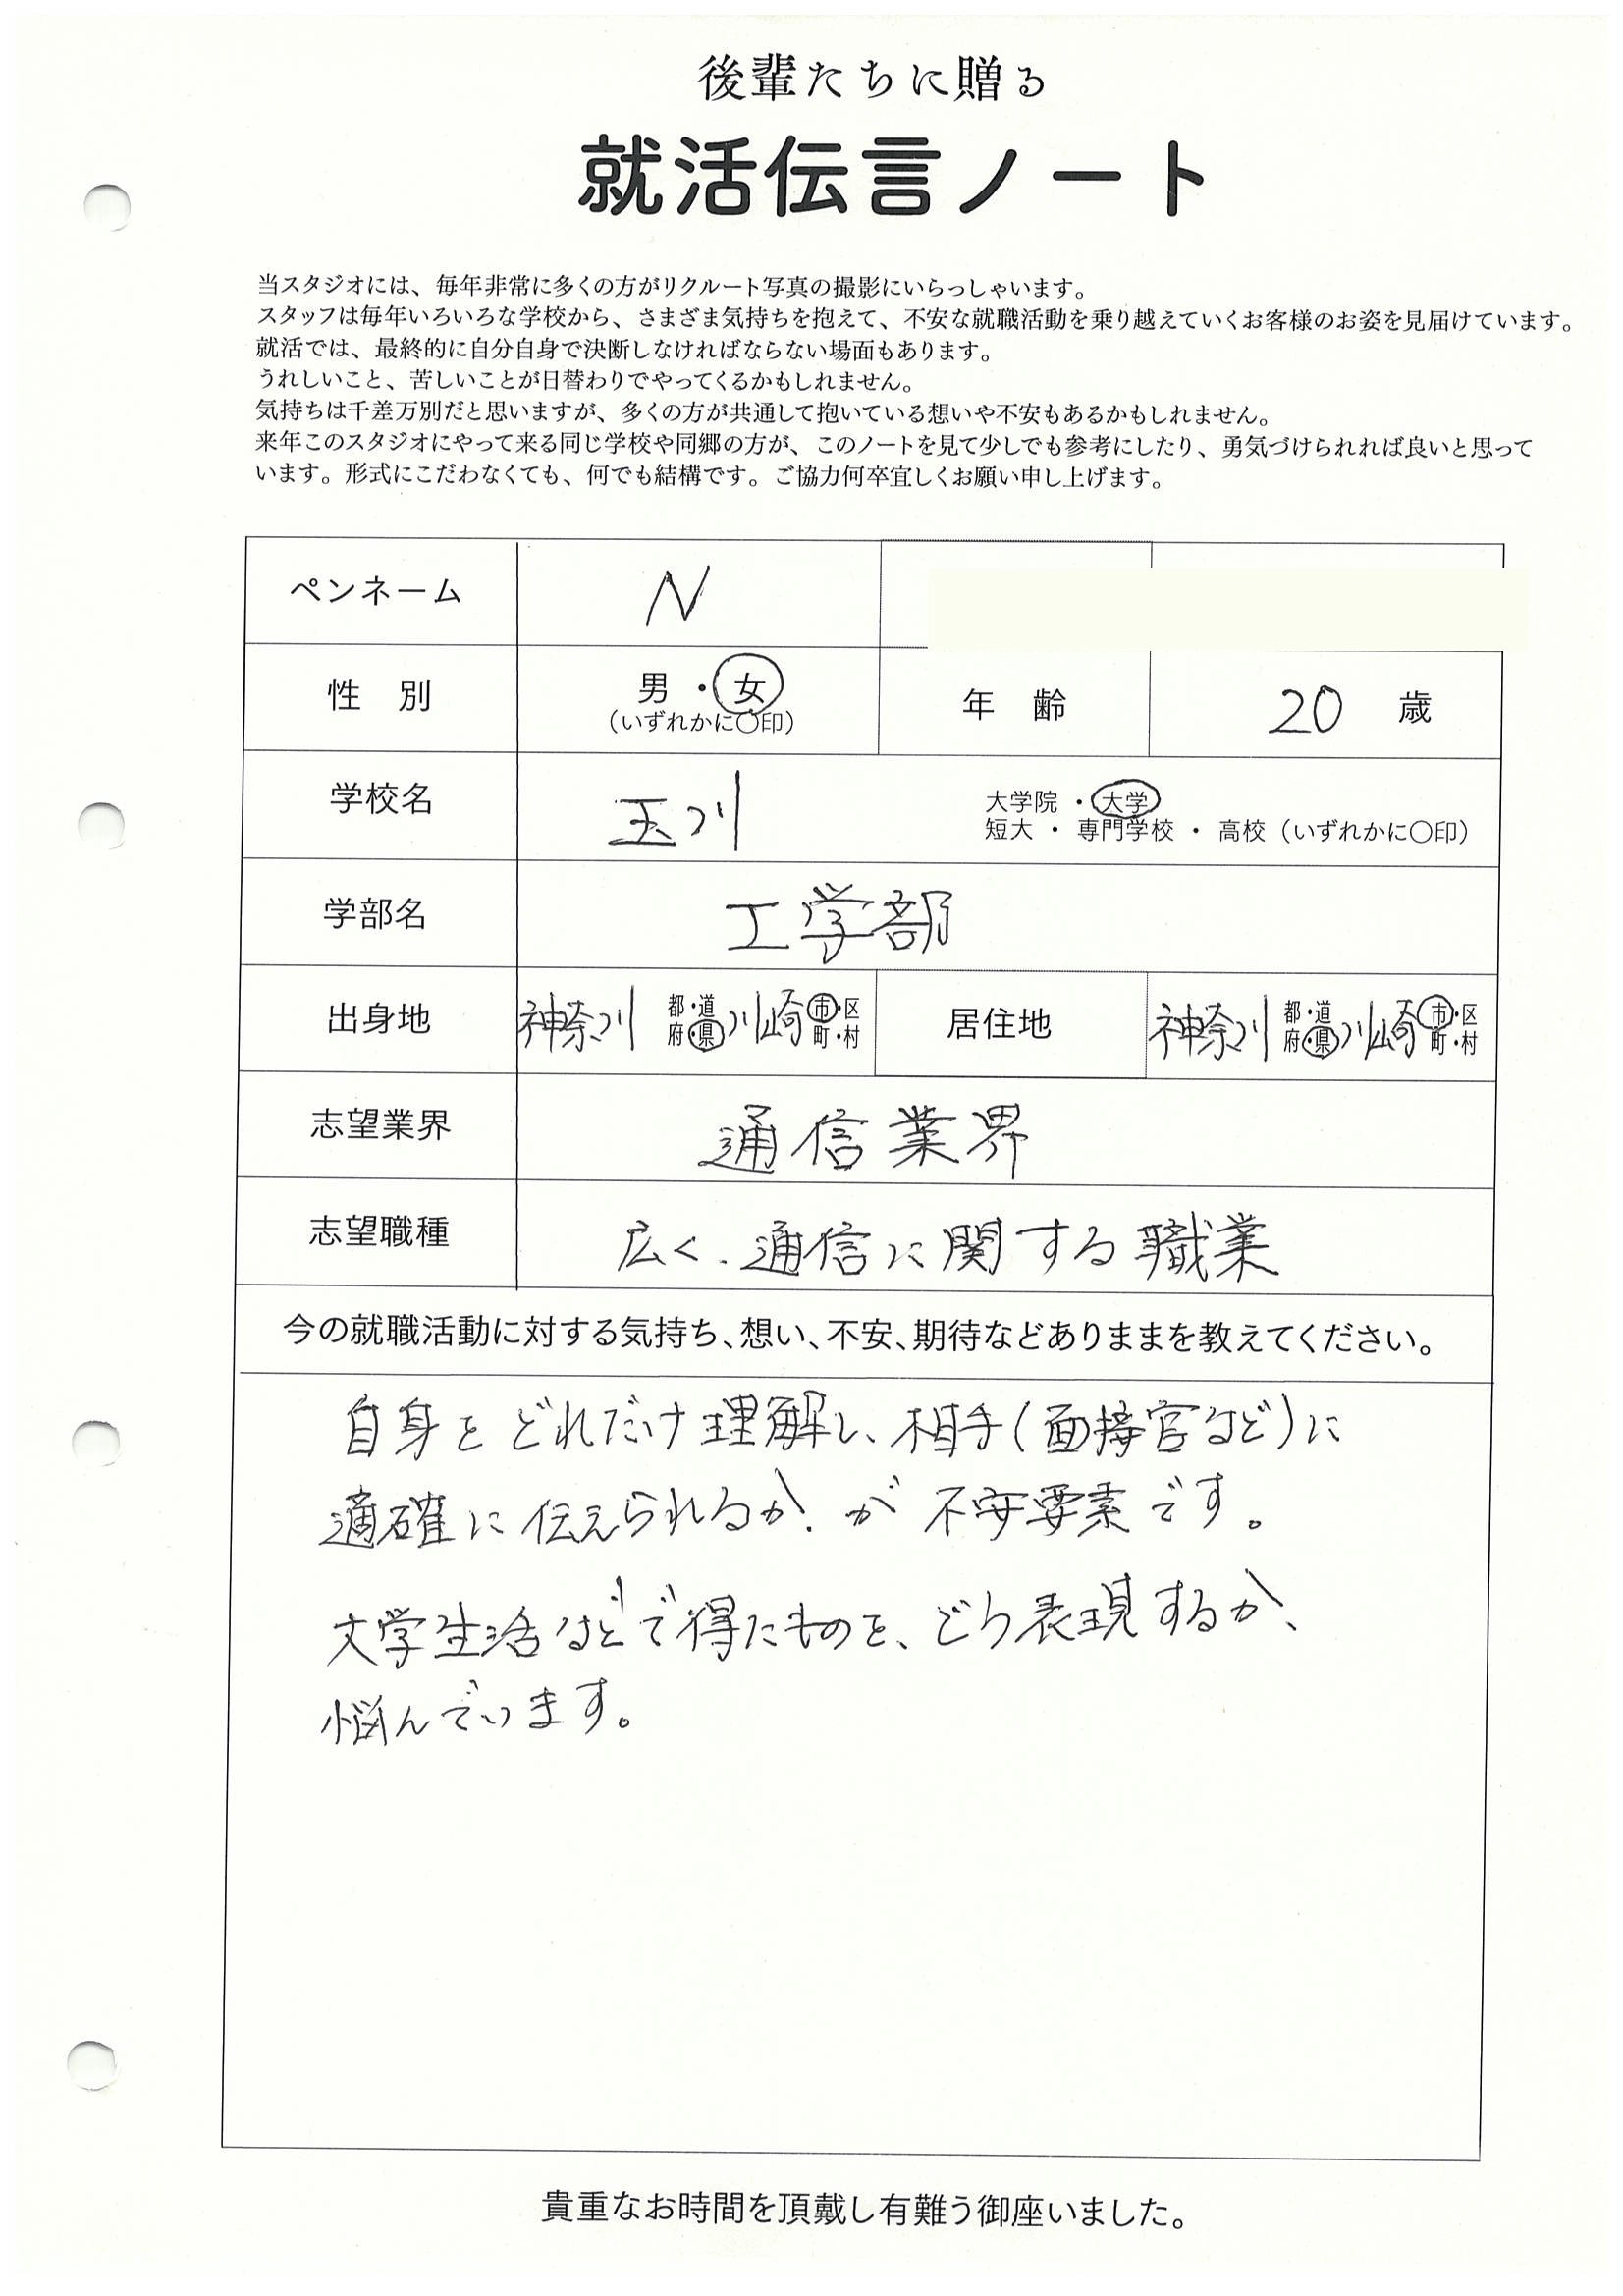 後輩たちに贈る
就活伝言ノート
当スタジオには、毎年非常に多くの方がリクルート写真の撮影にいらっしゃいます。
スタッフは毎年いろいろな学校から、さまざま気持ちを抱えて、不安な就職活動を乗り越えていくお客様のお姿を見届けています。
就活では、最終的に自分自身で決断しなければならない場面もあります。
うれしいこと、苦しいことが日替わりでやってくるかもしれません。
気持ちは千差万別だと思いますが、多くの方が共通して抱いている想いや不安もあるかもしれません。
来年このスタジオにやって来る同じ学校や同郷の方が、このノートを見て少しでも参考にしたり、勇気づけられれば良いと思って
います。形式にこだわなくても、何でも結構です。ご協力何卒宜しくお願い申し上げます。
ペンネーム N
性 別 男・女 年 齢 20 歳
（いずれかに〇印）
学校名 玉川 大学院・大学
短大・専門学校・高校（いずれかに〇印）
学部名 工学部
出身地 神奈川 都・道府・県 川崎 市・区町・村 居住地 神奈川 都・道府・県 川崎 市・区町・村
志望業界 通信業界
志望職種 広く、通信に関する職業
今の就職活動に対する気持ち、想い、不安、期待などありままを教えてください。
自身をどれだけ理解し、相手(面接官など)に
適確に伝えられるか、が不安要素です。
大学生活などで得たものを、どう表現するか、
悩んでいます。
貴重なお時間を頂戴し有難う御座いました。